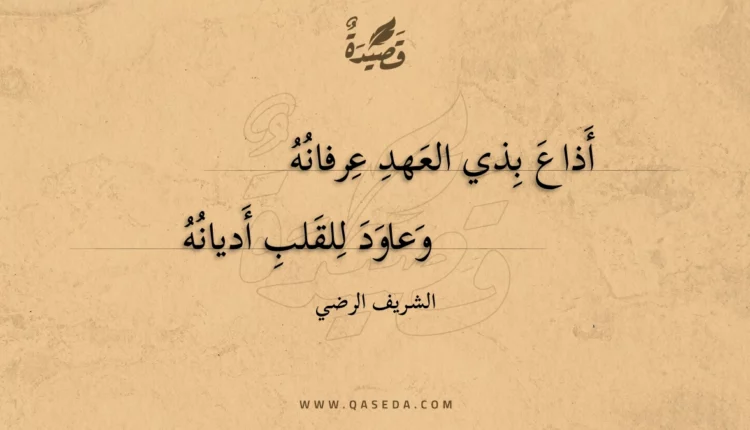 قَصِيدَةٌ
أَذاعَ بِذي العَهدِ عِرفانُهُ
وَعاوَدَ لِلقَلبِ أَديانُهُ
الشريف الرضي
WWW.QASEDA.COM